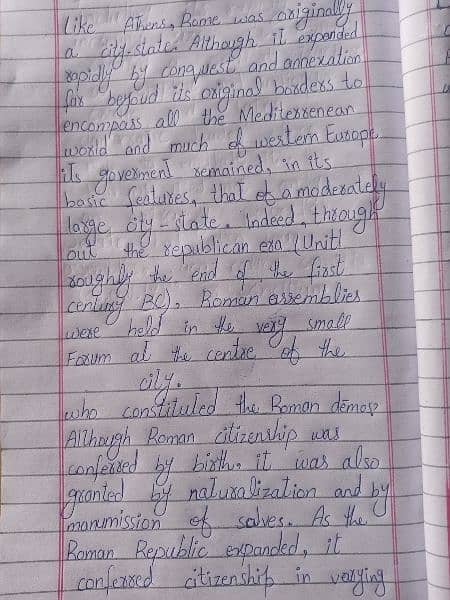 Like Athens, Rome was originally
a city-state. Although it expanded
rapidly by conquest and annexation
far beyoud its original borders to
encompass all the Mediterrenean
world and much of western Europe,
its goverment remained, in its
basic features, that of a moderately
large city-state. Indeed, through
out the republican era (Unitl
roughly the end of the first
century BC), Roman assemblies
were held in the very small
Forum at the centre of the
city.
who constituled the Roman dēmos?
Although Roman citizenship was
conferred by birth, it was also
granted by naturalization and by
manumission of salves. As the
Roman Republic expanded, it
conferred citizenship in varying